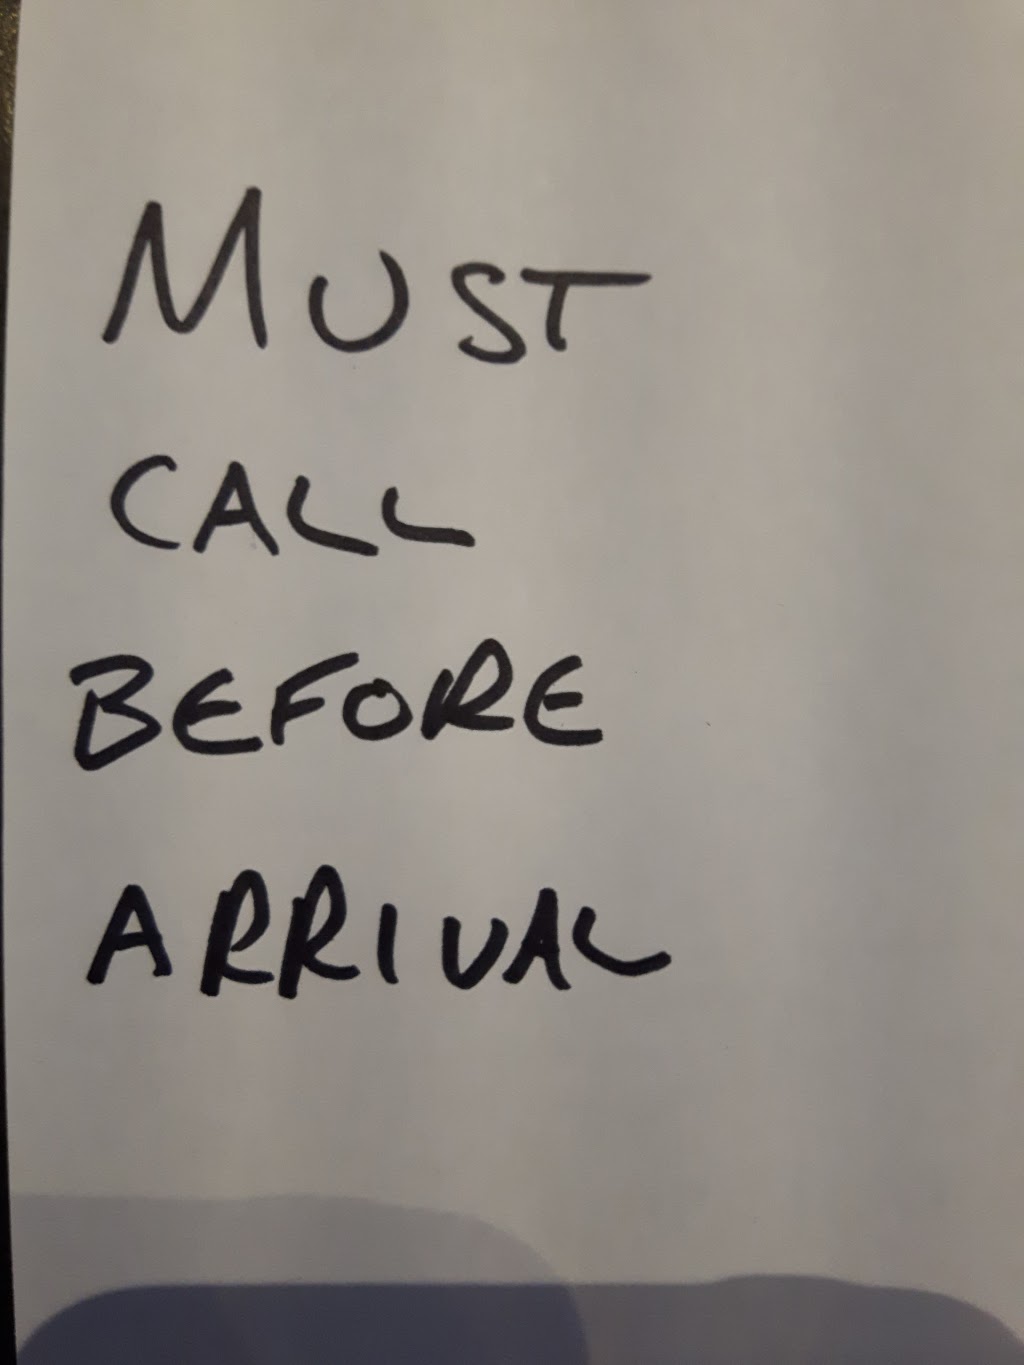 MUST
CALL
BEFORE
ARRIVAL